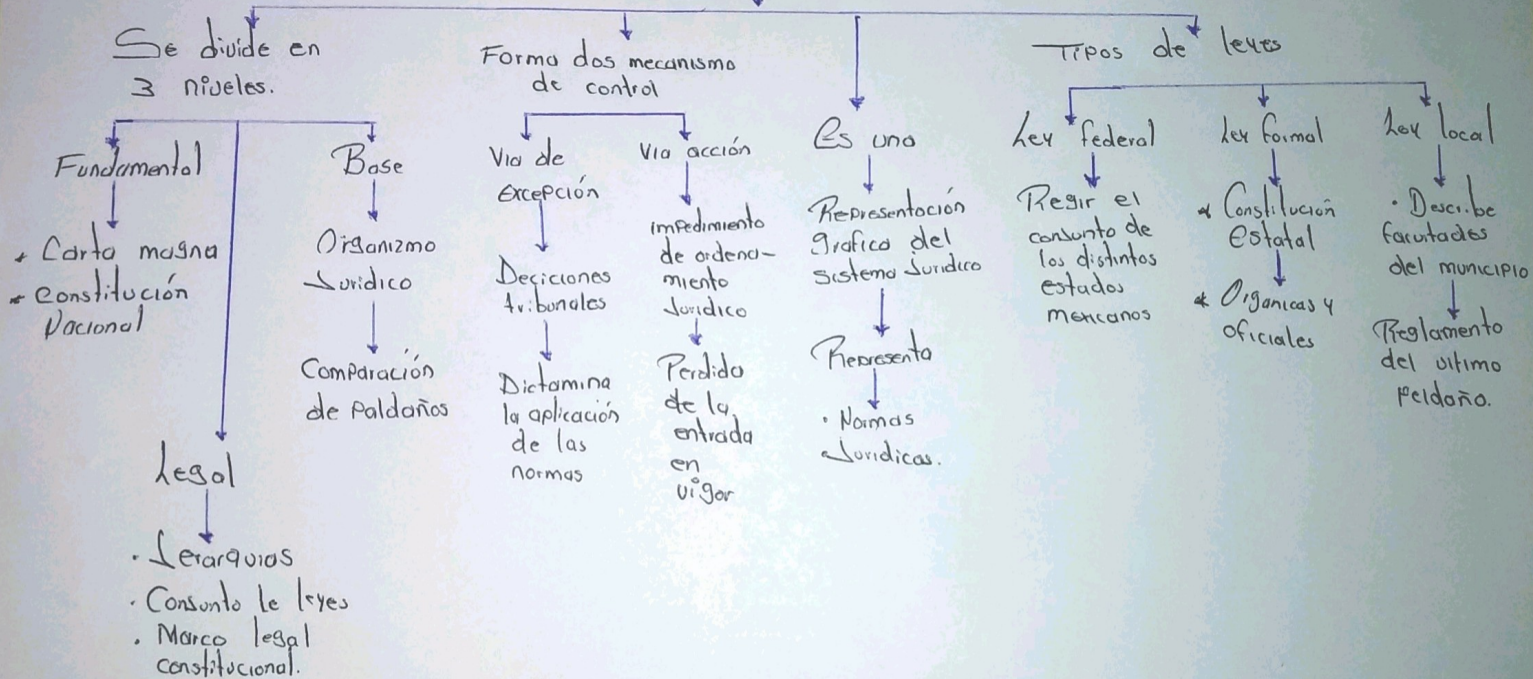 Se divide en
3 niveles.
Fundamental
* Carta magna
* Constitución
Nacional
Legal
· Jerarquias
· Conjunto le leyes
· Marco legal
constitucional.
Base
Organizmo
Juridico
Comparación
de Paldaños
Forma dos mecanismo
de control
Via de
Excepción
Deciciones
tribunales
Dictamina
la aplicación
de las
normas
Via acción
impedimiento
de ordena-
miento
Juridico
Perdida
de la
entrada
en
vigor
Es una
Representación
grafica del
sistema Juridico
Representa
· Normas
Juridicas.
Tipos de leyes
Ley federal
Regir el
conjunto de
los distintos
estados
mexicanos
Ley formal
* Constitución
estatal
* Organicas y
oficiales
Ley local
· Describe
facultades
del municipio
Reglamento
del ultimo
Peldaño.